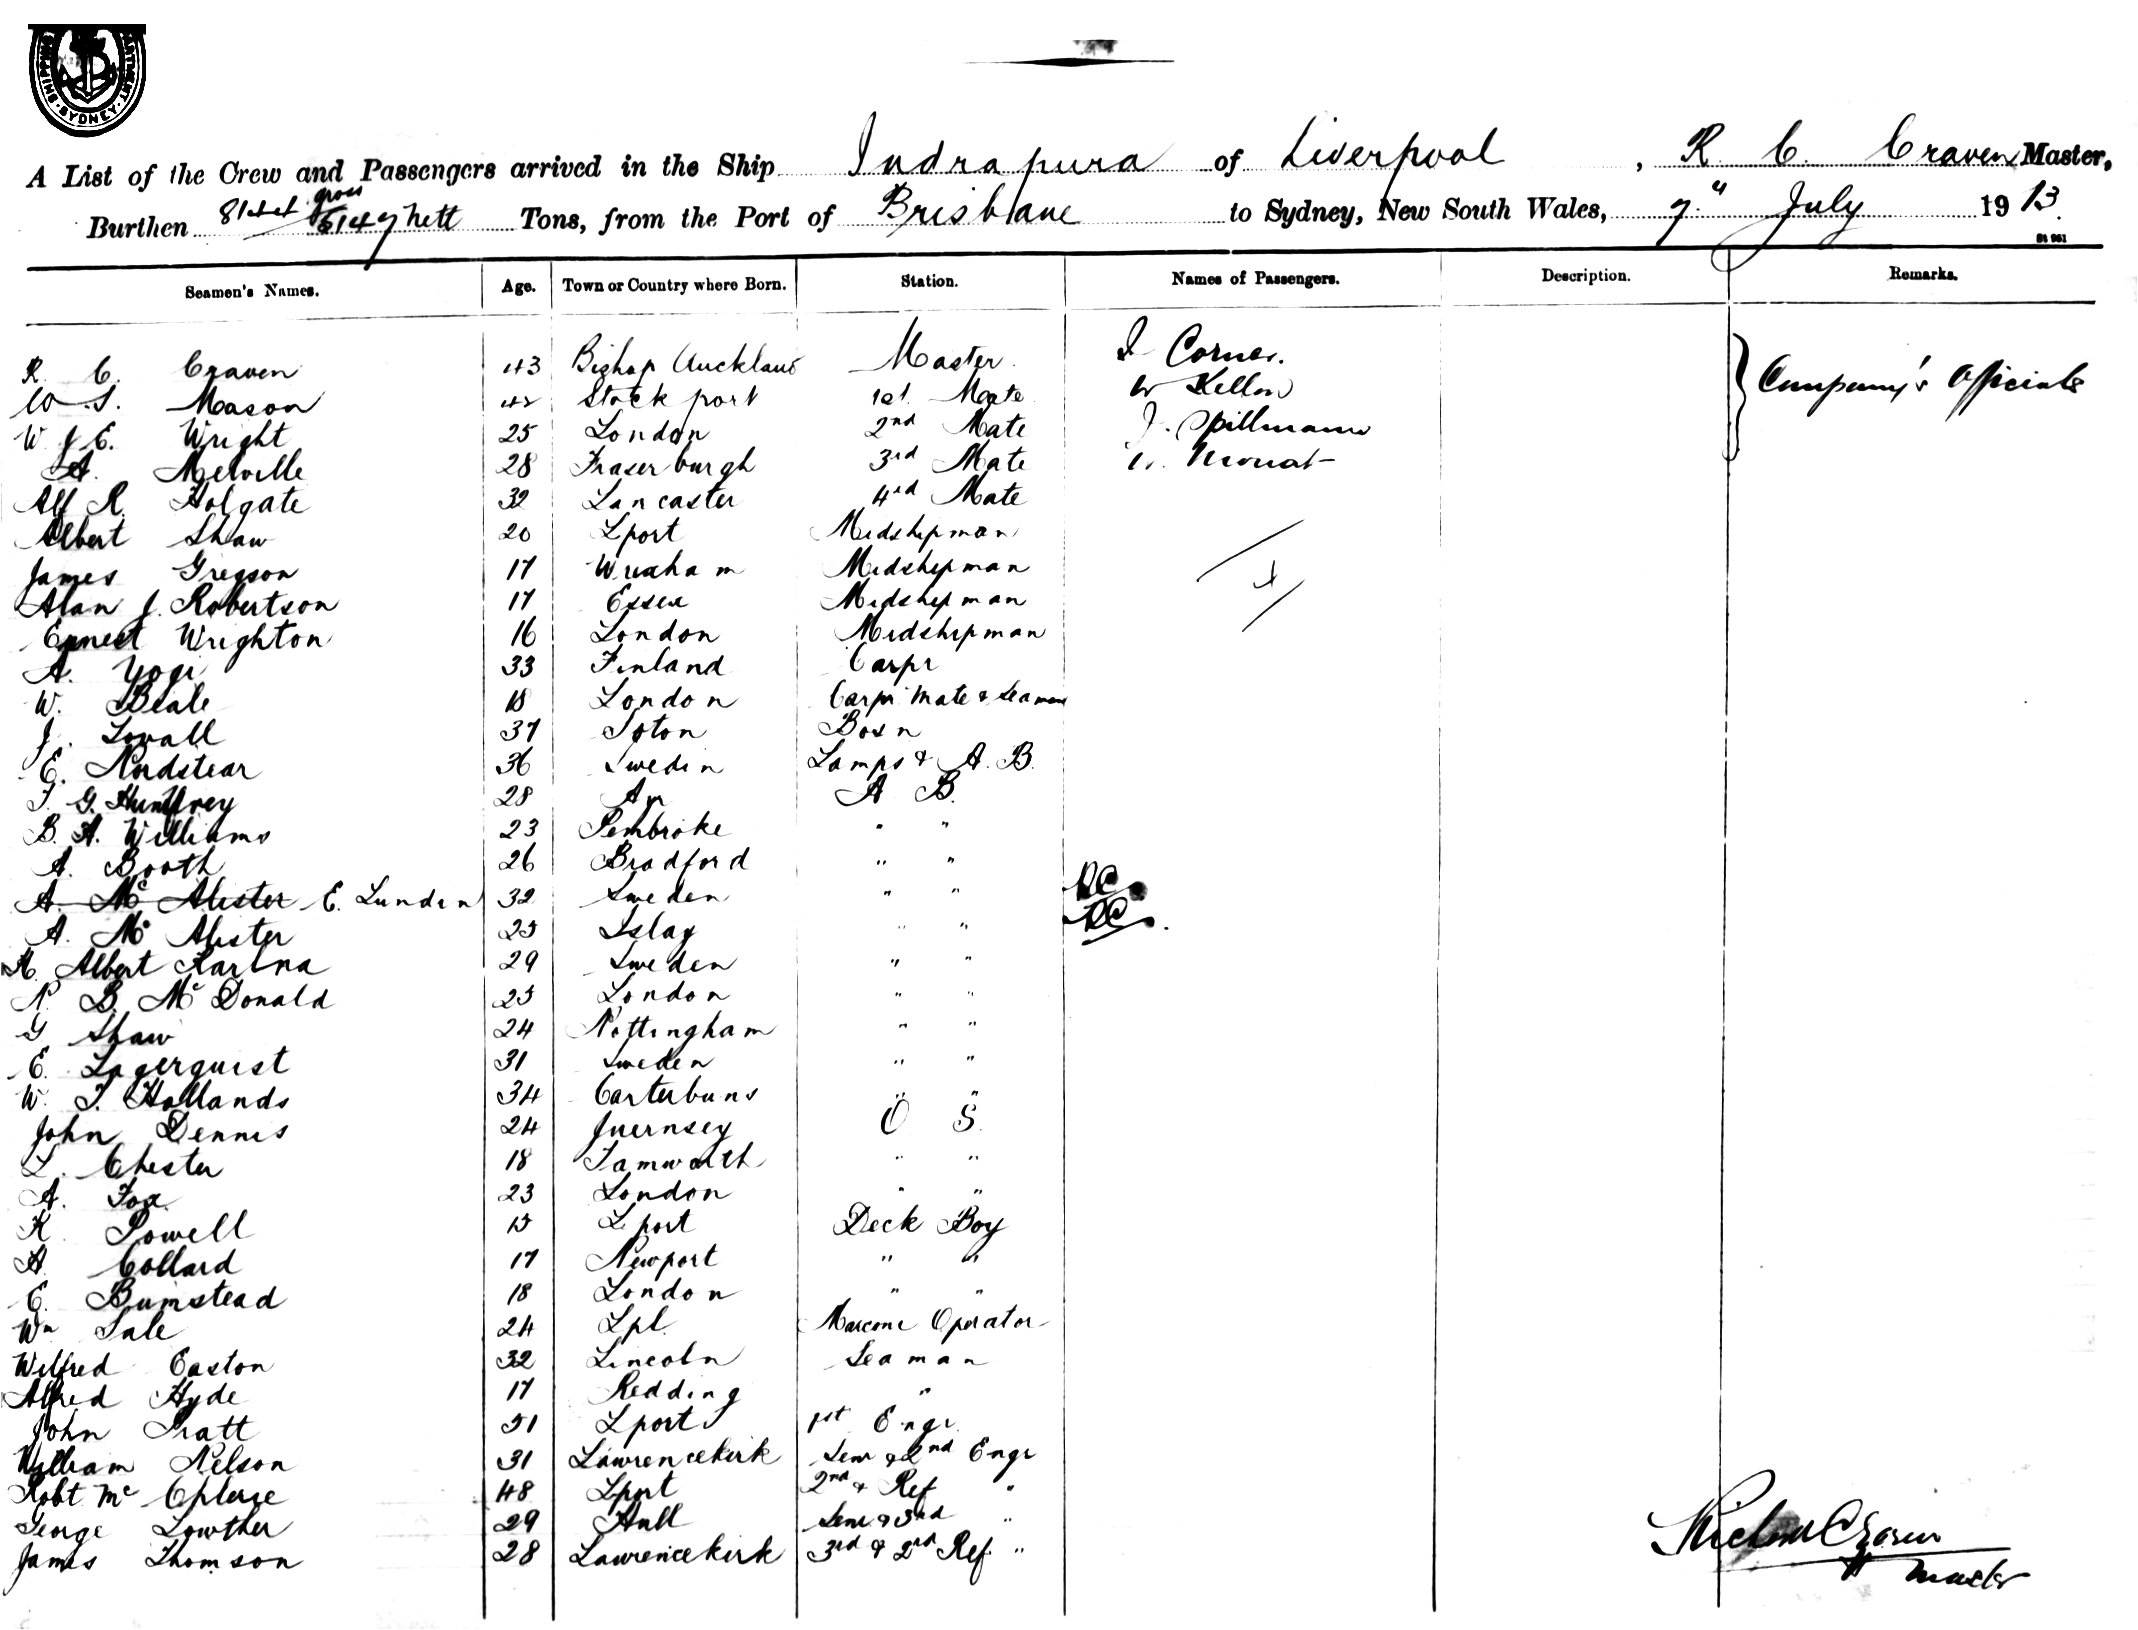 SHIPPING SYDNEY
A List of the Crew and Passengers arrived in the Ship Indrapura of Liverpool, R C Craven Master,
Burthen gross 5149 nett Tons, from the Port of Brisbane to Sydney, New South Wales, 9" July 1913
St 961
Seamen's Names. Age. Town or Country where Born. Station. Names of Passengers. Description. Remarks.
R. C. Craven 43 Bishop Auckland Master Corner. Company's Officials
W. S. Mason 42 Stockport 1st Mate W Kellow
W J E. Wright 25 London 2nd Mate J. Spillmann
A. Melville 28 Fraserburgh 3rd Mate
Alf R. Holgate 32 Lancaster 4rd Mate
Albert Shaw 20 Lport Midshipman
James Gregson 17 Wrexham Midshipman
Alan J. Robertson 17 Essex Midshipman
Ernest Wrighton 16 London Midshipman
A. Yogi 33 Finland Carpr
W. Beale 18 London Carpr Mate & Seaman
J. Lovall 37 Soton Bosn
E. Nordstear 36 Sweden Lamps & A. B.
T. G. Humfrey 28 Ayr A B.
B. A. Williams 23 Pembroke " "
A. Booth 26 Bradford " "
A. Mc Alester E. Lunden 32 Sweden " " RC
A. Mc Alester 25 Islay " " RC
K. Albert Karlna 29 Sweden " "
N. B. Mc Donald 25 London " "
G Shaw 24 Nottingham " "
E. Lagerquist 31 Sweden " "
W. T. Hollands 34 Carterbuns " "
John Dennis 24 Guernsey O S.
L. Chester 18 Tamworth " "
A. Fox 23 London " "
K Powell 15 Lport Deck Boy
A. Collard 17 Newport " "
E. Bumstead 18 London " "
Wm Sale 24 Lpl. Marconi Operator
Wilfred Easton 32 Lincoln Seaman
Alfred Hyde 17 Redding "
John Pratt 51 Lport 1st Engr
William Nelson 31 Lawrencekirk Senr & 2nd Engr
Robt Mc 48 Lport 2nd & Ref "
George Lowther 29 Hull Senr & 3rd "
James Thomson 28 Lawrencekirk 3rd & 2nd Ref. "
Craven
Master